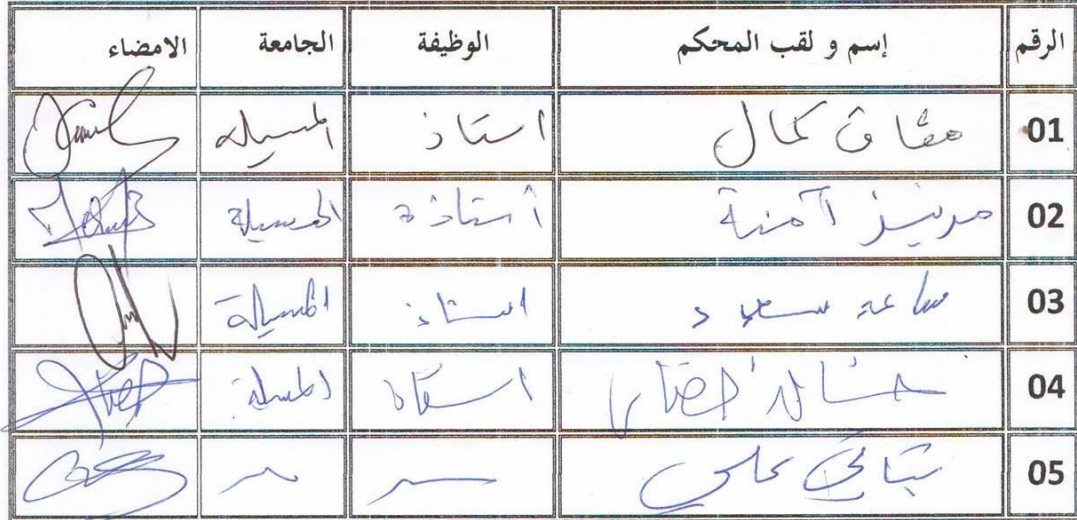 الرقم إسم و لقب المحكم الوظيفة الجامعة الامضاء
01 مقاق كمال استاذ المسيلة
02 مرنيز آمنة أستاذة المسيلة
03 ساعد سعود استاذ المسيلة
04 خالد استاذ المسيلة
05 علي